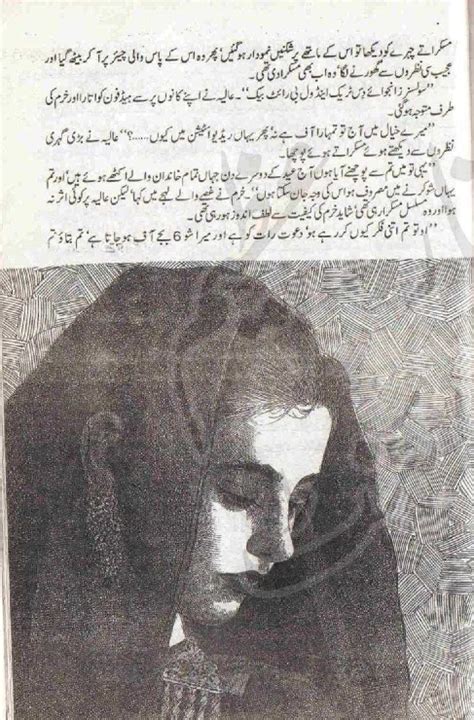 مسکراتے چہرے کو دیکھا تو اس کے ماتھے پر شکنیں نمودار ہوگئیں‘ پھر وہ اس کے پاس والی چیئر پر آ کر بیٹھ گیا اور
عجیب سی نظروں سے گھورنے لگا‘ وہ اب بھی مسکرا دی تھی۔
”سلسنرز انجوائے دس ٹریک اینڈ ول بی رائٹ بیک“۔ عالیہ نے اپنے کانوں پر سے ہیڈفون کو اتارا اور خرم کی
طرف متوجہ ہوگئی۔
”میرے خیال میں آج تو تمہارا آف ہے نا‘ پھر یہاں ریڈیو اسٹیشن میں کیوں.....؟“ عالیہ نے بڑی گہری
نظروں سے دیکھتے ہوئے مسکراتے ہوئے پوچھا۔
”یہی تو میں تم سے پوچھنے آیا ہوں‘ آج عید کے دوسرے دن جہاں تمام خاندان والے اکٹھے ہوئے ہیں اور تم
یہاں شو کرنے میں مصروف ہو‘ اس کی وجہ جان سکتا ہوں“۔ خرم نے غصے والے لہجے میں کہا‘ لیکن عالیہ پر کوئی اثر نہ
ہوا اور وہ مسلسل مسکرا رہی تھی‘ شاید خرم کی کیفیت سے لطف اندوز ہو رہی تھی۔
”او تو تم اتنی فکر کیوں کر رہے ہو‘ دعوت رات کو ہے اور میرا شو 6 بجے آف ہو جاتا ہے‘ تم بتاؤ تم